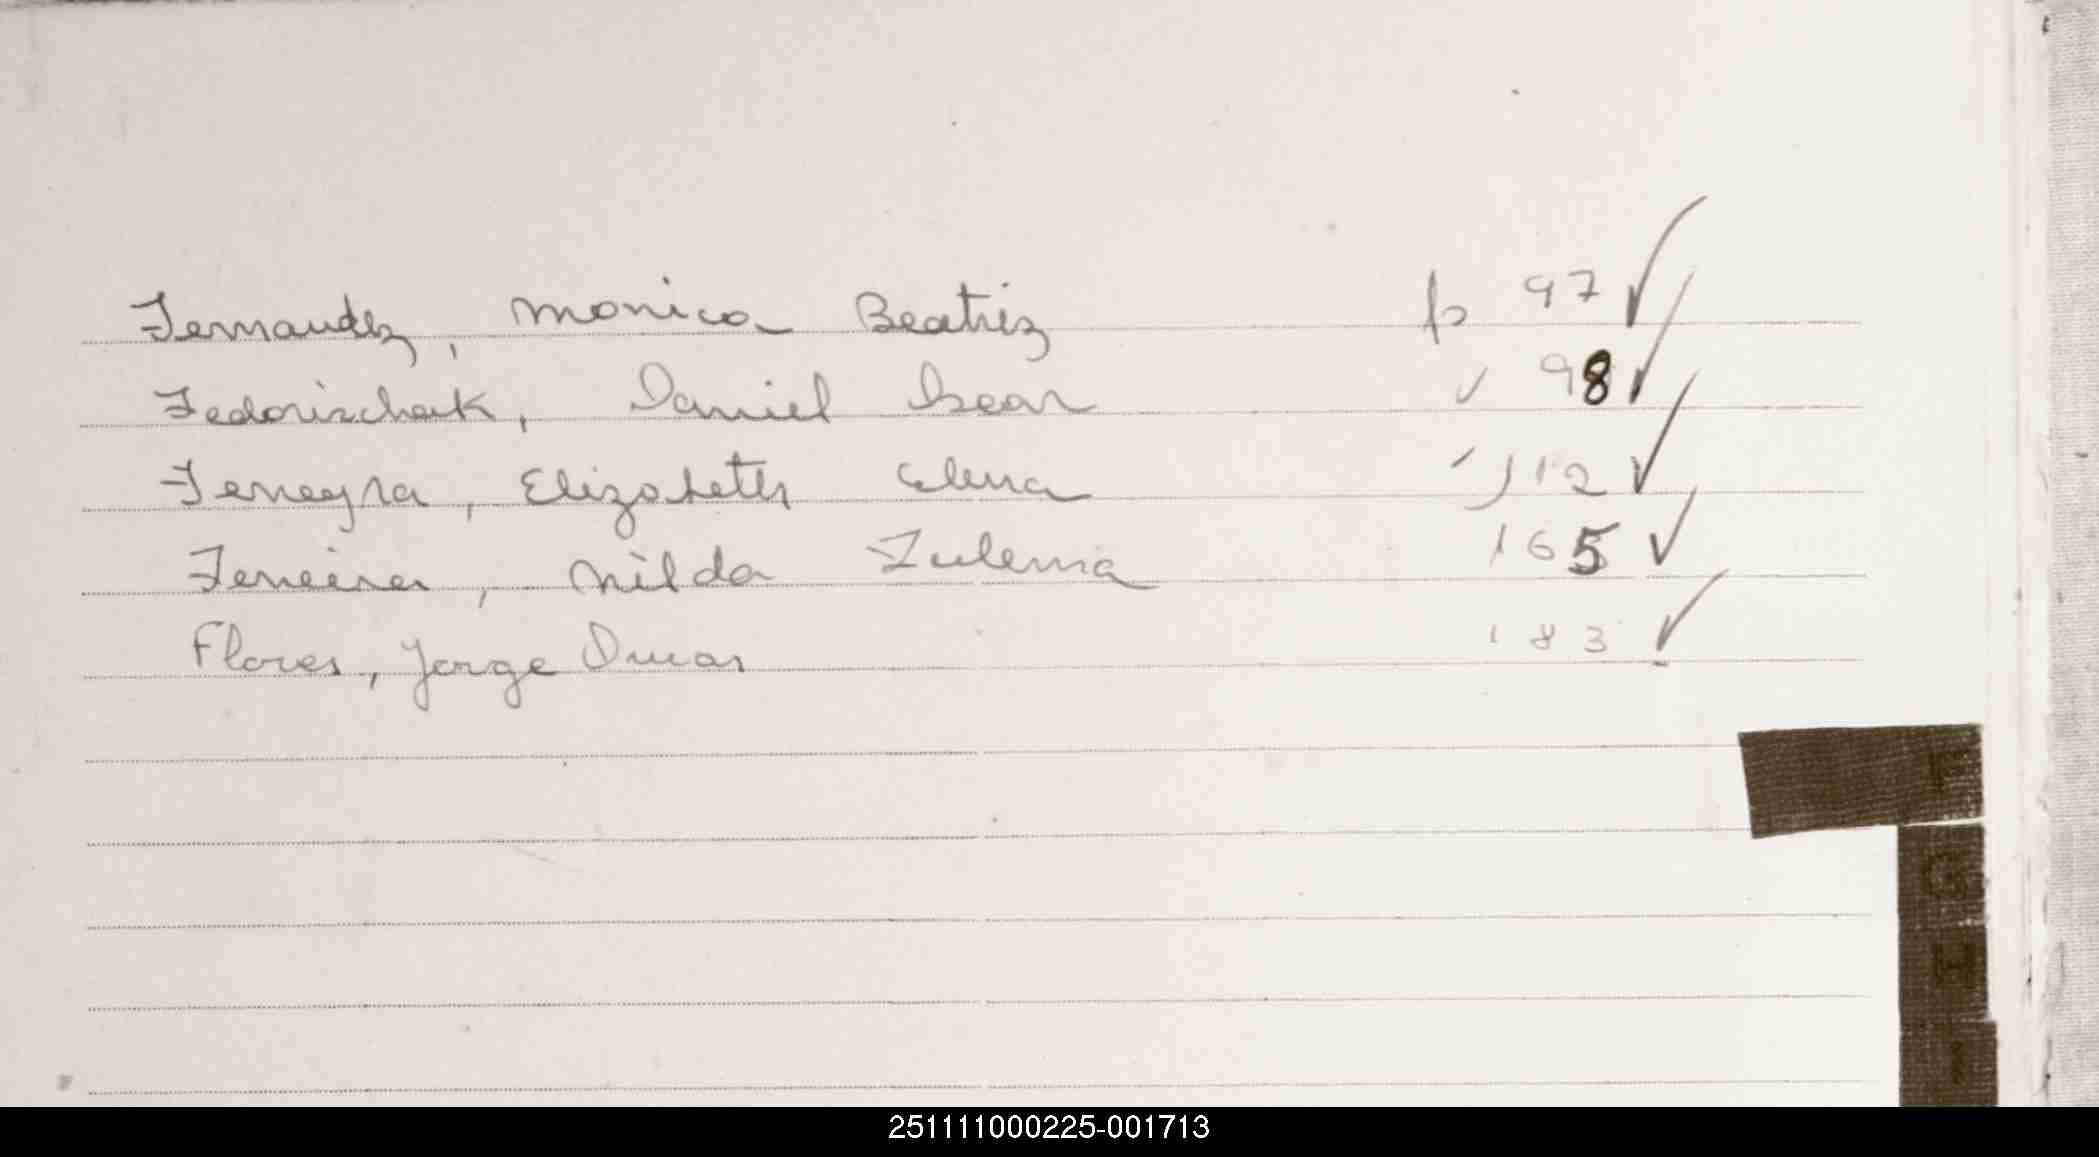 Fernandez, Monica Beatriz p 97 ✓
Fedorischak, Daniel Oscar ✓ 98 ✓
Ferreyra, Elizabeth Elena 112 ✓
Ferreira, Nilda Zulema 165 ✓
Flores, Jorge Omar 183 ✓
F
G
H
I
251111000225-001713